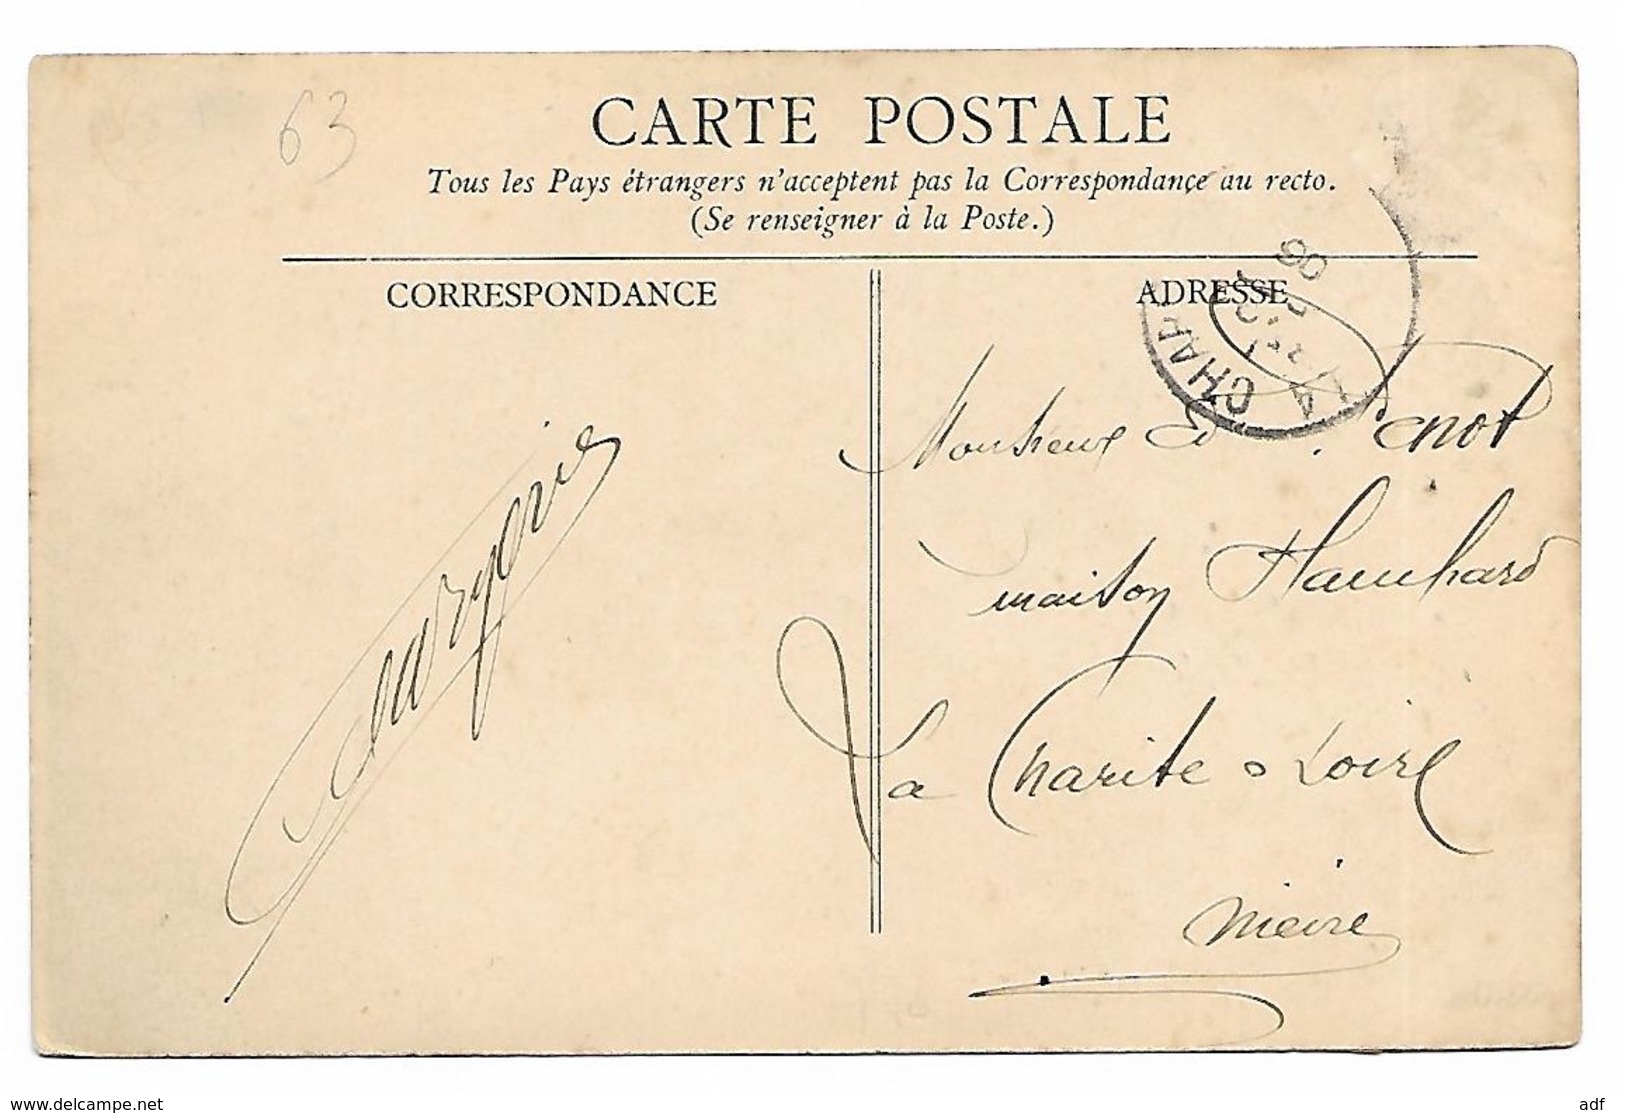 63
CARTE POSTALE
Tous les Pays étrangers n'acceptent pas la Correspondance au recto.
(Se renseigner à la Poste.)
CORRESPONDANCE
ADRESSE
LA CHAP
06
Monsieur Ed. Penot
maison
La Charite s Loire
Nièvre
www.delcampe.net
adf